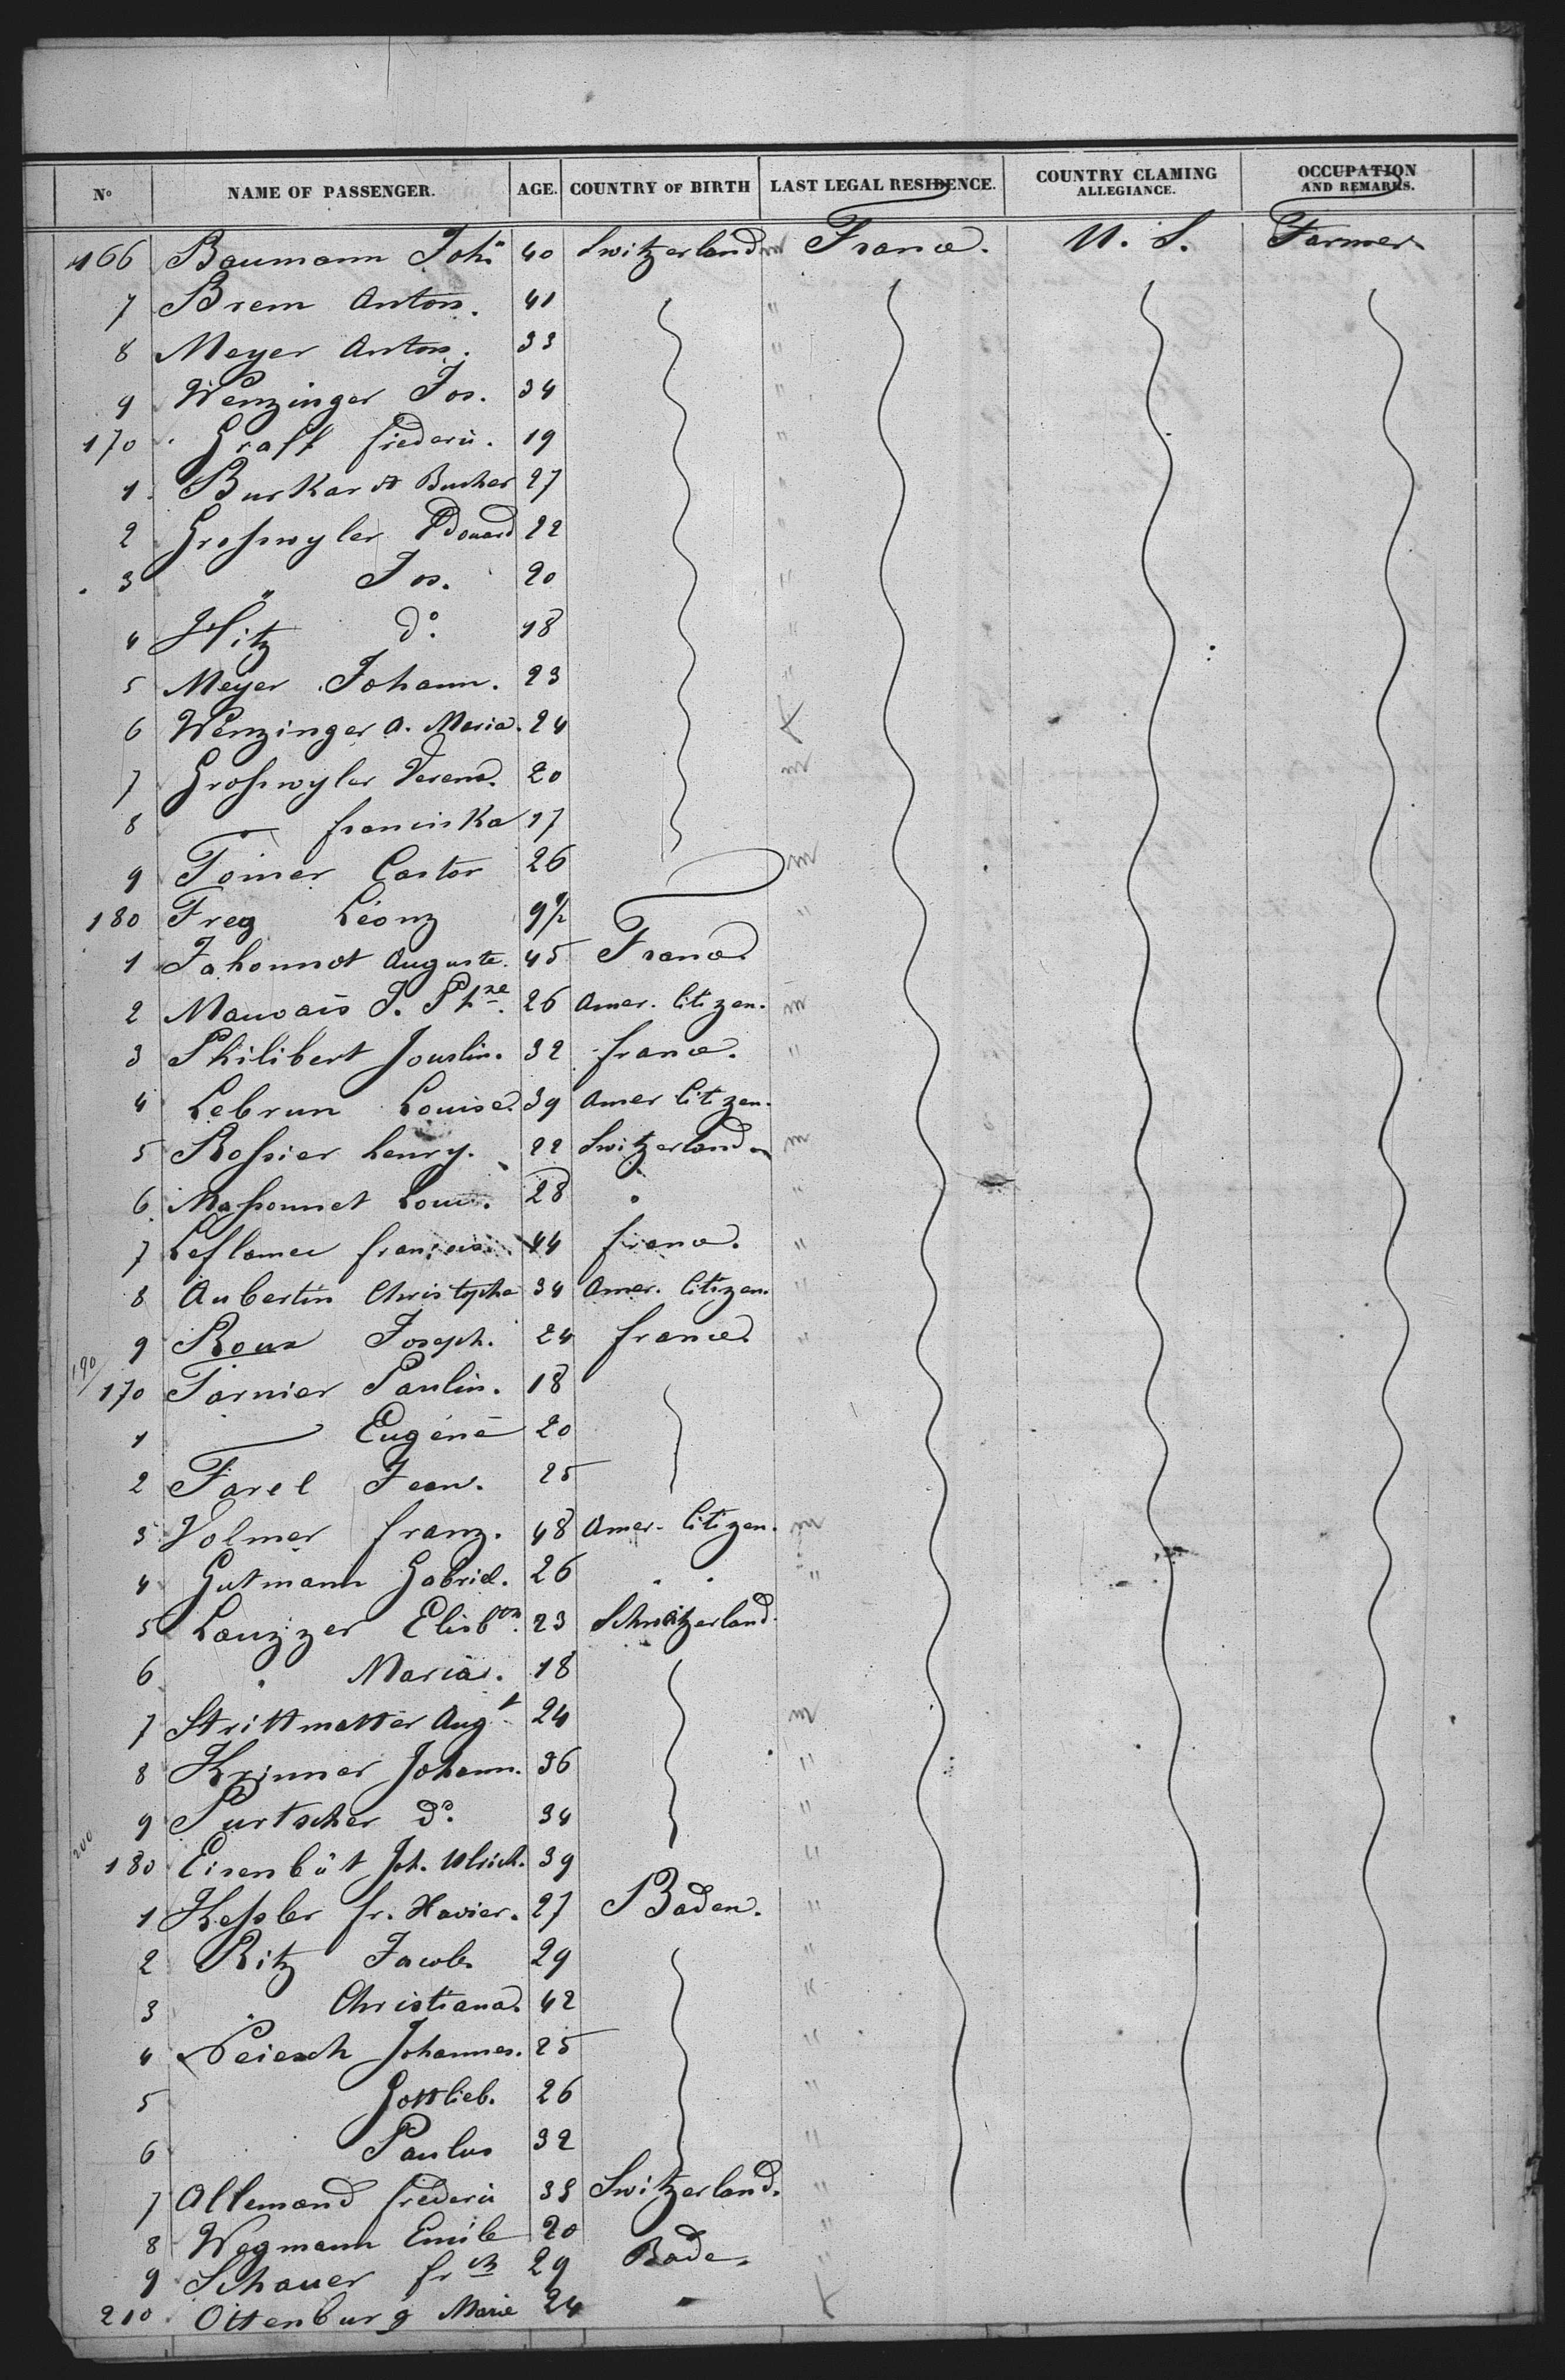 No NAME OF PASSENGER. AGE. COUNTRY OF BIRTH LAST LEGAL RESIDENCE. COUNTRY CLAMING ALLEGIANCE. OCCUPATION AND REMARKS.
166 Baumann Joh. 40 Switzerland m France. U. S. Farmer
7 Brem Anton. 41 "
8 Meyer Anton. 33 "
9 Wenzinger Jos. 34 "
170 Graff frederic. 19 "
1 Burkardt Bucher 27 "
2 Grosswyler Edouard 22 "
3 " Jos. 20 "
4 Hitz do. 18 "
5 Meyer Johann. 23 "
6 Wenzinger A. Maria. 24 f
7 Grosswyler Verena. 20 m
8 — franciska 17
9 Toiner Castor 26 m
180 Frey Léonz 9½ "
1 Jahonnot Auguste. 45 France
2 Mauvais J. Pre. 26 Amer. Citizen. m
3 Philibert Jouslin. 32 france. "
4 Lebrun Louise. 39 Amer Citizen.
5 Rossier henry. 22 Switzerland m
6 Massonnet Louis. 28 " "
7 francois 44 france. "
8 Aubertin Christophe 34 Amer. Citizen. "
9 Roux Joseph. 24 france. "
190/170 Tarnier Paulin. 18
1 — Eugéne 20
2 Farel Jean. 25
3 Volmer franz. 48 Amer. Citizen. m
4 Gutmann Gabriel. 26 " " "
5 Lauzzer Elisbth. 23 Schwitzerland
6 " Maria. 18
7 Strittmatter Augt. 24 m
8 Krinner Johann. 36 "
9 Purtscher do. 34 "
200 180 Eisenbüt Joh. Ulrich. 39 "
1 Kessler fr. Xavier. 27 Baden. "
2 Ritz Jacob. 29 "
3 " Christiana. 42 "
4 Peiesch Johannes. 25 "
5 Gottlieb. 26 "
6 Paulus 32 "
7 Allemand frederic 33 Switzerland. "
8 Wegmann Emile 20 "
9 Schauer frch 29 Bade. "
210 Ottenburg Marie 24 " f